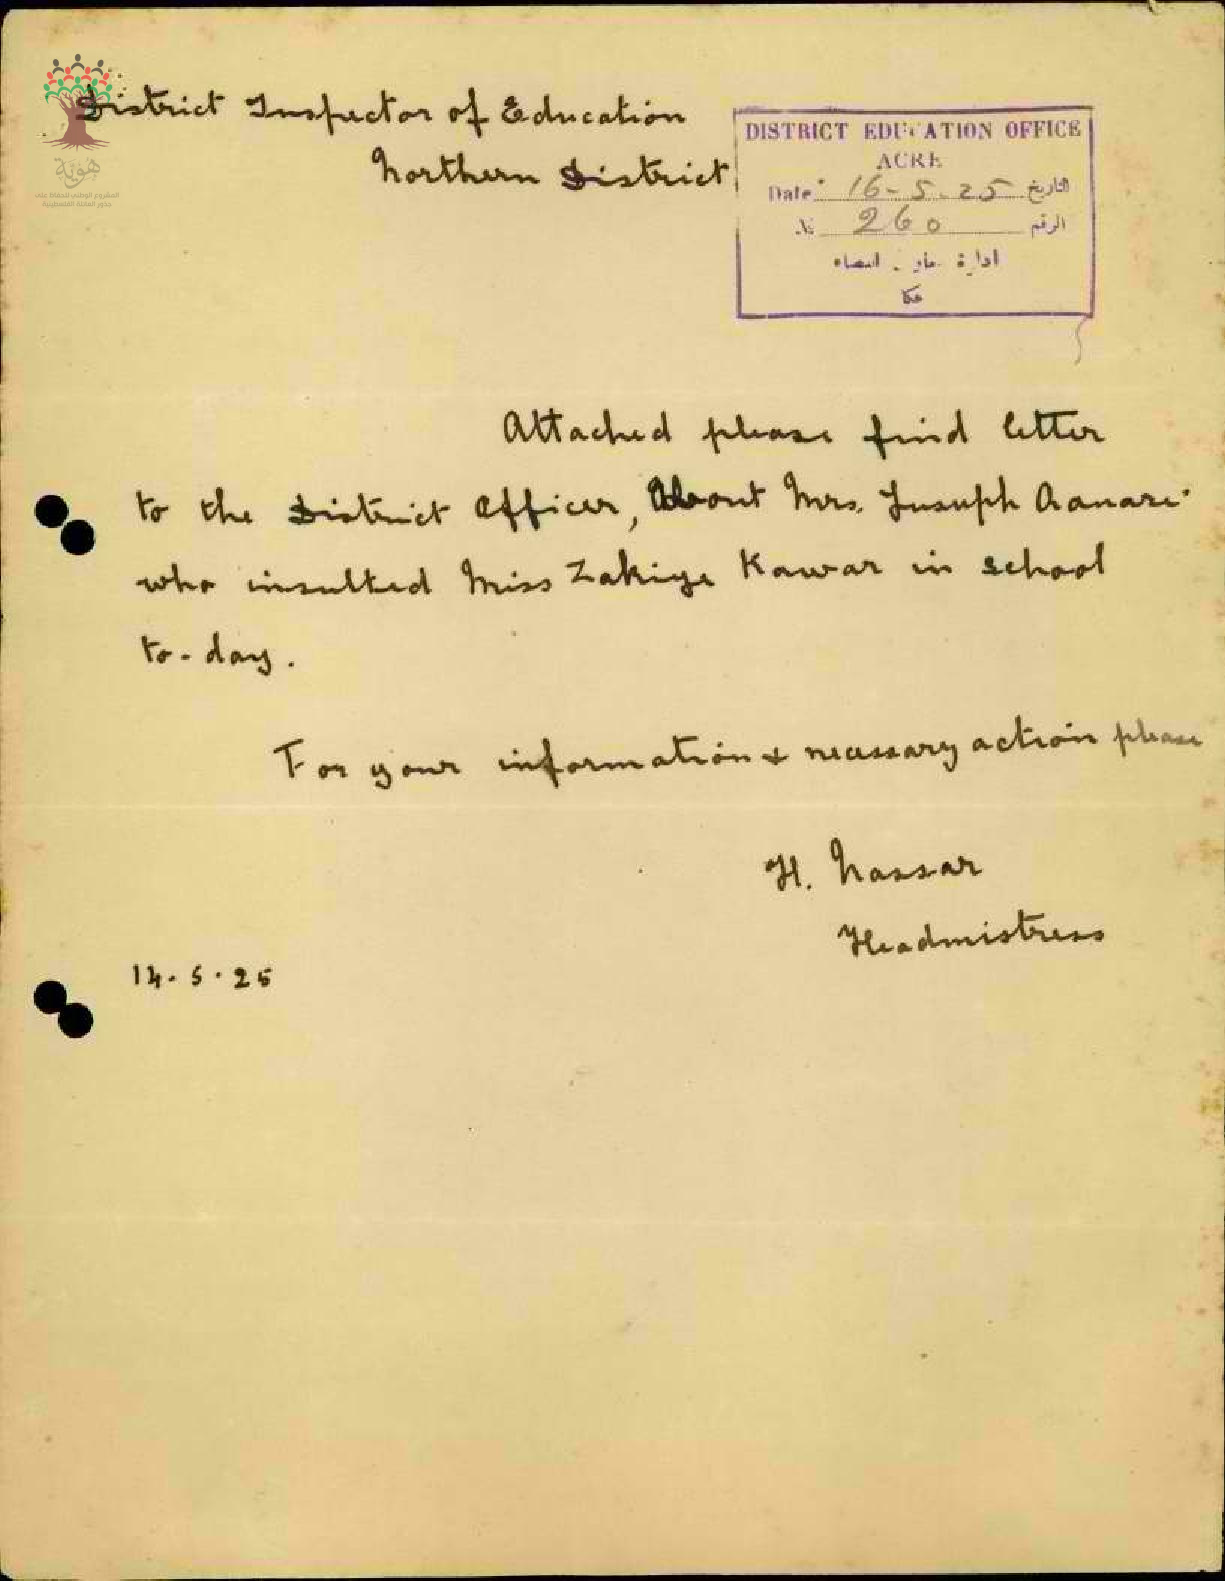 هوية
المشروع الوطني للحفاظ على
جذور العائلة الفلسطينية
District Inspector of Education
Northern District
DISTRICT EDUCATION OFFICE
ACRE
Date 16-5-25 التاريخ
№ 260 الرقم
ادارة
عكا
Attached please find letter
to the District Officer, About Mrs. Jusuph
who insulted Miss Zakiye Kawar in school
to-day.
For your information & necessary action please
H. Nassar
Headmistress
14.5.25